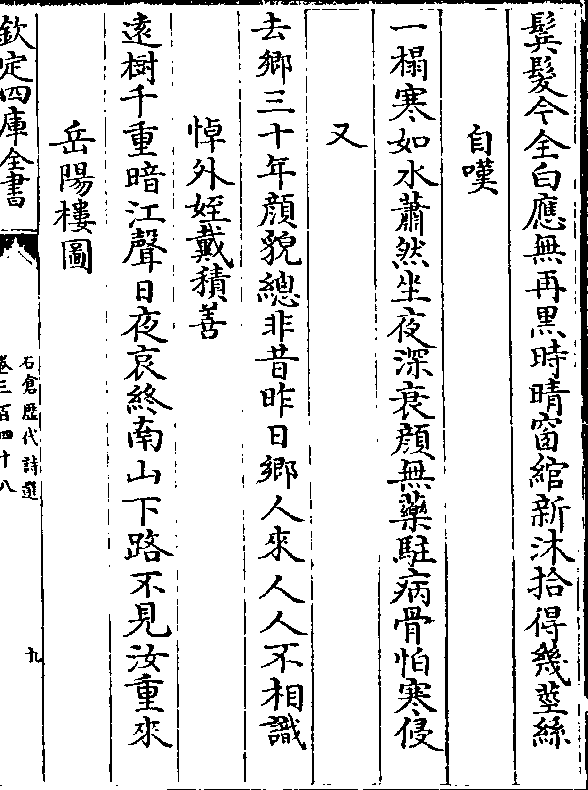 鬂髮今全白應無再黑時晴窗綰新沐拾得幾莖絲
自嘆
一榻寒如水蕭然坐夜深衰顔無藥駐病骨怕寒侵
又
去鄉三十年顔貌總非昔昨日鄉人來人人不相識
悼外姪戴積善
遠樹千重暗江聲日夜哀終南山下路不見汝重來
岳陽樓圖
欽定四庫全書
石倉歴代詩選
卷三百四十八
九